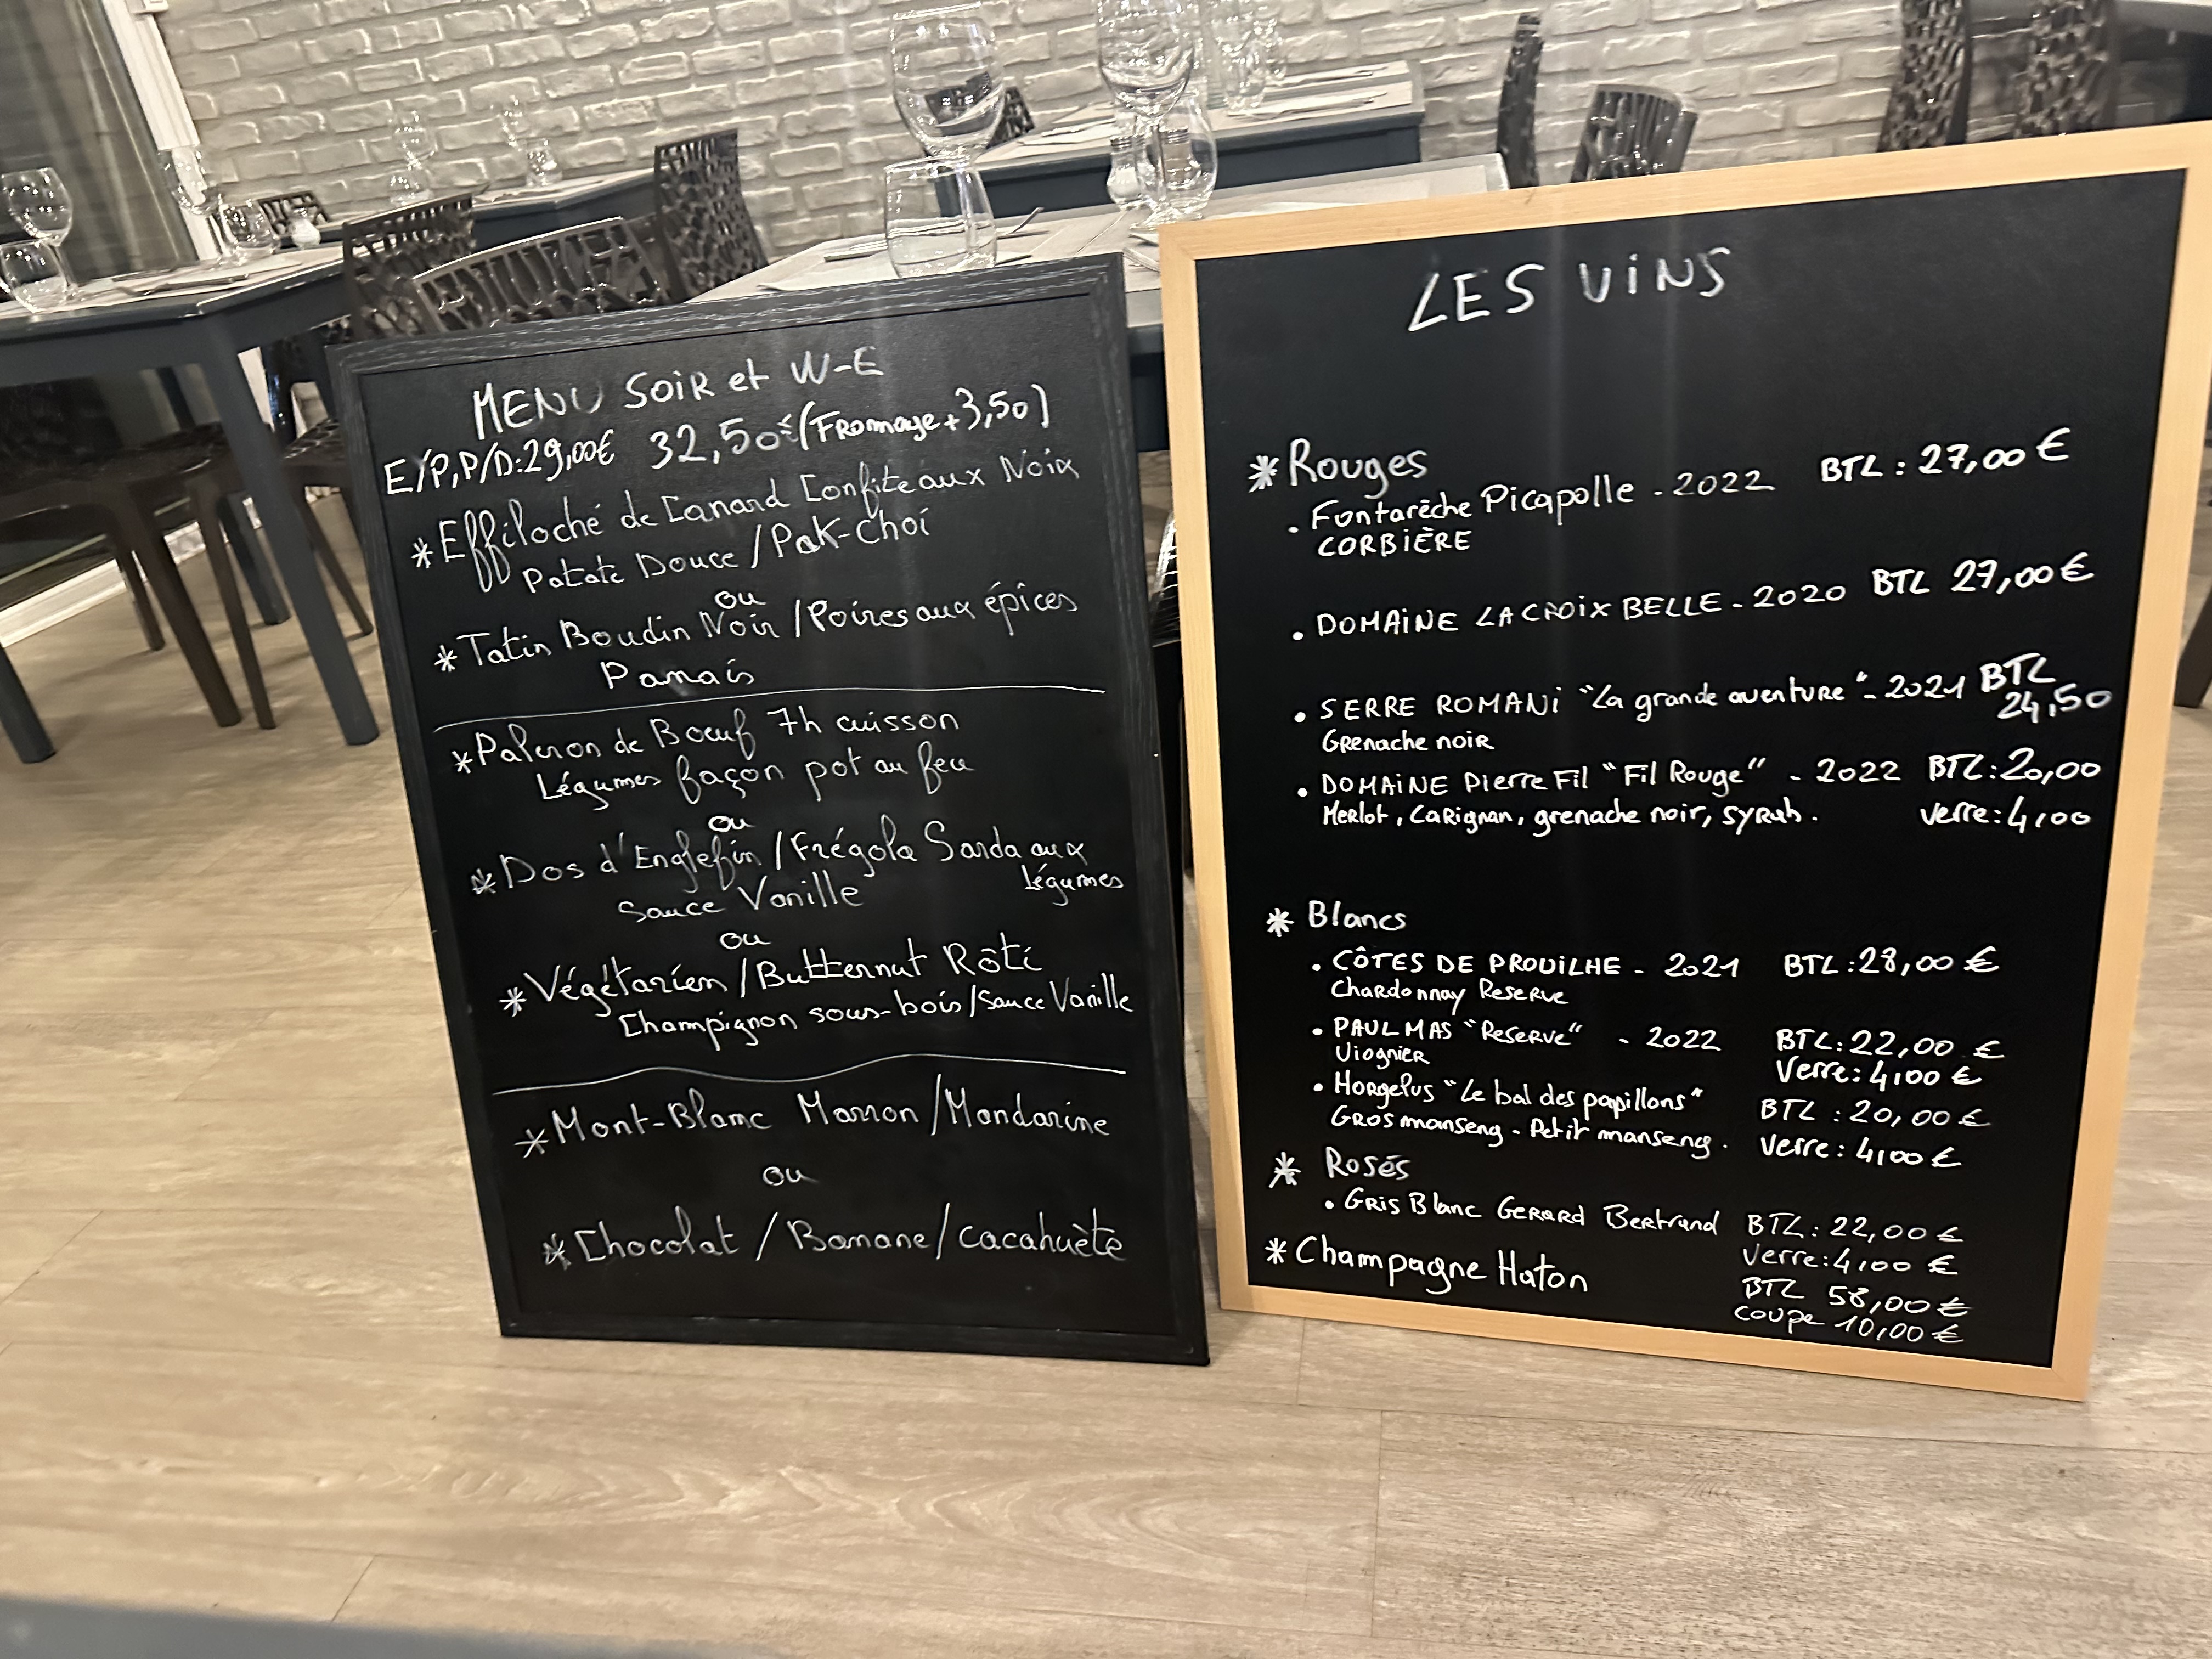 MENU SOIR et W-E
E/P,P/D:29,00€ 32,50€ (Fromage+3,50)
*Effiloché de Canard Confite aux Noix
Patate Douce / Pak-Choï
ou
*Tatin Boudin Noir / Poires aux épices
Panais
*Paleron de Boeuf 7h cuisson
Légumes façon pot au feu
ou
*Dos d'Englefin / Frégola Sarda aux
légumes
Sauce Vanille
ou
*Végétarien / Butternut Rôti
Champignon sous-bois / Sauce Vanille
*Mont-Blanc Marron / Mandarine
ou
*Chocolat / Banane / cacahuète
LES ViNS
*Rouges
. Fontarèche Picapolle - 2022 BTL : 27,00 €
CORBIÈRE
. DOMAiNE LA CROiX BELLE - 2020 BTL 27,00 €
. SERRE ROMANi "La grande aventure" - 2021 BTL
24,50
Grenache noir
. DOMAiNE Pierre Fil "Fil Rouge" - 2022 BTL : 20,00
Merlot, Carignan, grenache noir, syrah. verre : 4,00
* Blancs
. CÔTES DE PROUILHE - 2021 BTL : 28,00 €
Chardonnay Reserve
. PAUL MAS "Reserve" - 2022 BTL : 22,00 €
Viognier Verre : 4,00 €
. Horgelus "Le bal des papillons" BTL : 20,00 €
Gros manseng - Petit manseng. Verre : 4,00 €
* Rosés
. GRis Blanc Gerard Bertrand BTL : 22,00 €
Verre : 4,00 €
*Champagne Haton BTL 58,00 €
coupe 10,00 €